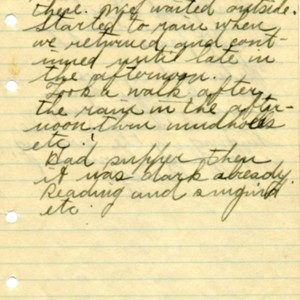 there. and waited outside.
Started to rain when
we returned and cont-
inued until late in
the afternoon.
Took a walk after
the rain in the after-
noon, thru mudholes
etc.
Had supper then
it was dark already.
Reading and singing
etc.